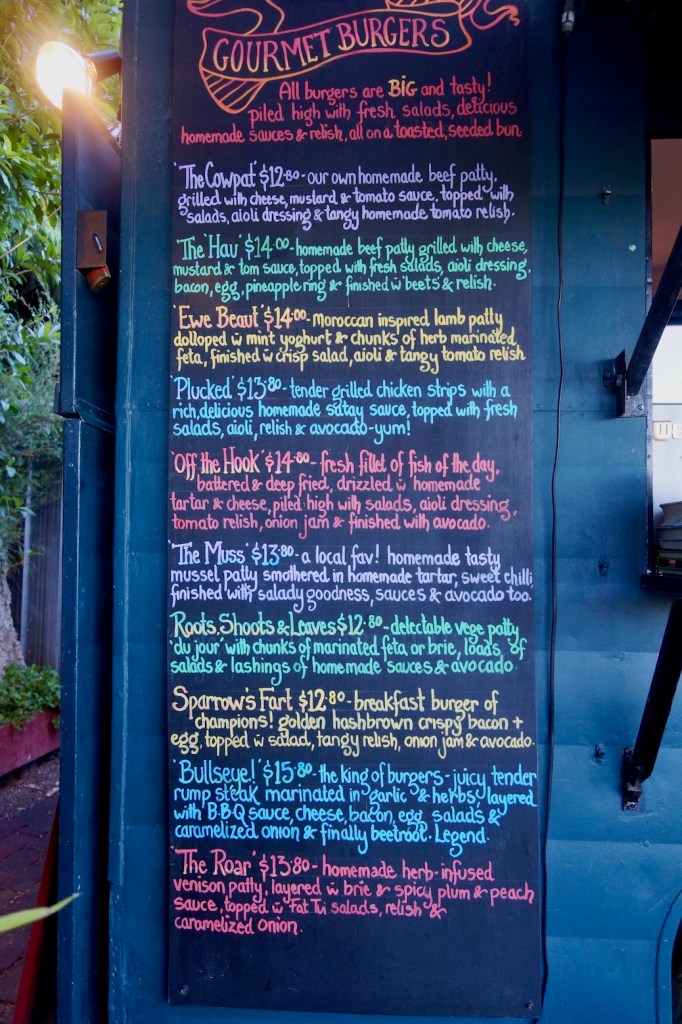 GOURMET BURGERS
All burgers are BIG and tasty!
piled high with fresh salads, delicious
homemade sauces & relish, all on a toasted, seeded bun.
'The Cowpat' $12.80 - our own homemade beef patty,
grilled with cheese, mustard & tomato sauce, topped with
salads, aioli dressing & tangy homemade tomato relish.
'The 'Hau' $14.00 - homemade beef patty grilled with cheese,
mustard & tom sauce, topped with fresh salads, aioli dressing,
bacon, egg, pineapple ring & finished w beets & relish.
'Ewe Beaut' $14.00 - Moroccan inspired lamb patty
dolloped w mint yoghurt & chunks of herb marinated
feta, finished w crisp salad, aioli & tangy tomato relish
'Plucked' $13.80 - tender grilled chicken strips with a
rich, delicious homemade satay sauce, topped with fresh
salads, aioli, relish & avocado - yum!
'Off the Hook' $14.80 - fresh fillet of fish of the day,
battered & deep fried, drizzled w homemade
tartar & cheese, piled high with salads, aioli dressing,
tomato relish, onion jam & finished with avocado.
'The Muss' $13.80 - a local fav! homemade tasty
mussel patty smothered in homemade tartar, sweet chilli,
finished with salady goodness, sauces & avocado too.
Roots, Shoots & Leaves $12.80 - delectable vege patty
'du jour' with chunks of marinated feta or brie, loads of
salads & lashings of homemade sauces & avocado.
Sparrow's Fart $12.80 - breakfast burger of
champions! golden hashbrown crispy bacon +
egg, topped w salad, tangy relish, onion jam & avocado.
'Bullseye!' $15.80 - the king of burgers - juicy, tender
rump steak marinated in garlic & herbs, layered
with B.B.Q sauce, cheese, bacon, egg, salads &
caramelized onion & finally beetroot. Legend.
'The Roar' $13.80 - homemade herb-infused
venison patty, layered w brie & spicy plum & peach
sauce, topped w Fat Tui salads, relish &
caramelized onion.